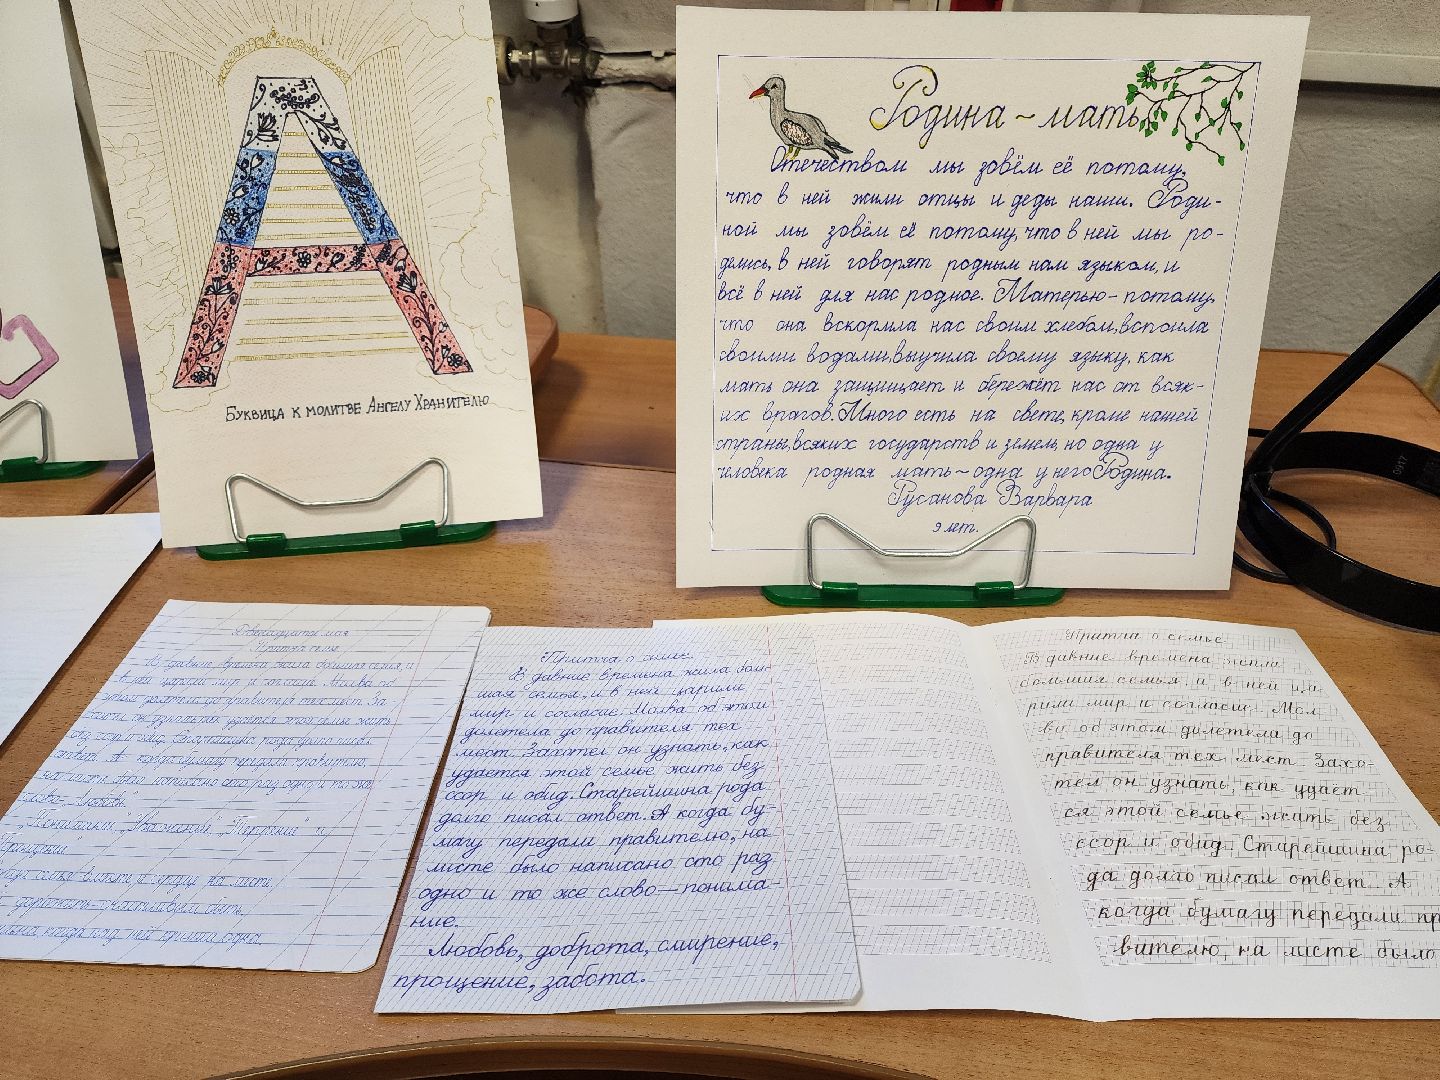 Буквица к молитве Ангелу Хранителю
Родина ~ мать
Отечеством мы зовём её потому,
что в ней жили отцы и деды наши. Роди-
ной мы зовём её потому, что в ней мы ро-
дились, в ней говорят родным нам языком, и
всё в ней для нас родное. Матерью - потому,
что она вскормила нас своим хлебом, вспоила
своими водами, выучила своему языку, как
мать она защищает и бережёт нас от всяк-
их врагов. Много есть на свете, кроме нашей
страны, всяких государств и земель, но одна у
человека родная мать ~ одна у него Родина.
Русанова Варвара
9 лет.
Притча
В давние времена жила большая семья, и
в ней царили мир и согласие. Молва об
этом долетела до правителя тех мест. За
хотел он узнать, как удаётся этой семье жить
ответ. А когда бумагу передали правителю,
на листе было написано сто раз одно и то же
слово
Притча о
В давние времена жила боль-
шая семья, и в ней царили
мир и согласие. Молва об этом
долетела до правителя тех
мест. Захотел он узнать, как
удается этой семье жить без
ссор и обид. Старейшина рода
долго писал ответ. А когда бу-
магу передали правителю, на
листе было написано сто раз
одно и то же слово — понима-
ние.
Любовь, доброта, смирение,
прощение, забота.
Притча о семье
В давние времена жила
большая семья и в ней ца-
рили мир и согласие. Мол-
ва об этом долетела до
правителя тех мест. Захо-
тел он узнать, как удает
ся этой семье жить без
ссор и обид. Старейшина ро-
да долго писал ответ. А
когда бумагу передали пр
вителю, на листе было
0917